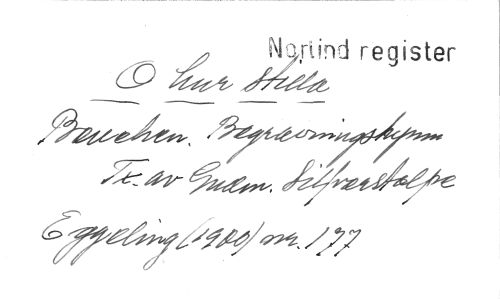 Nortind register
O hur stilla
Begravningshymn
Tx. av Gudm. Silfverstolpe
Eggeling (1900) nr. 177